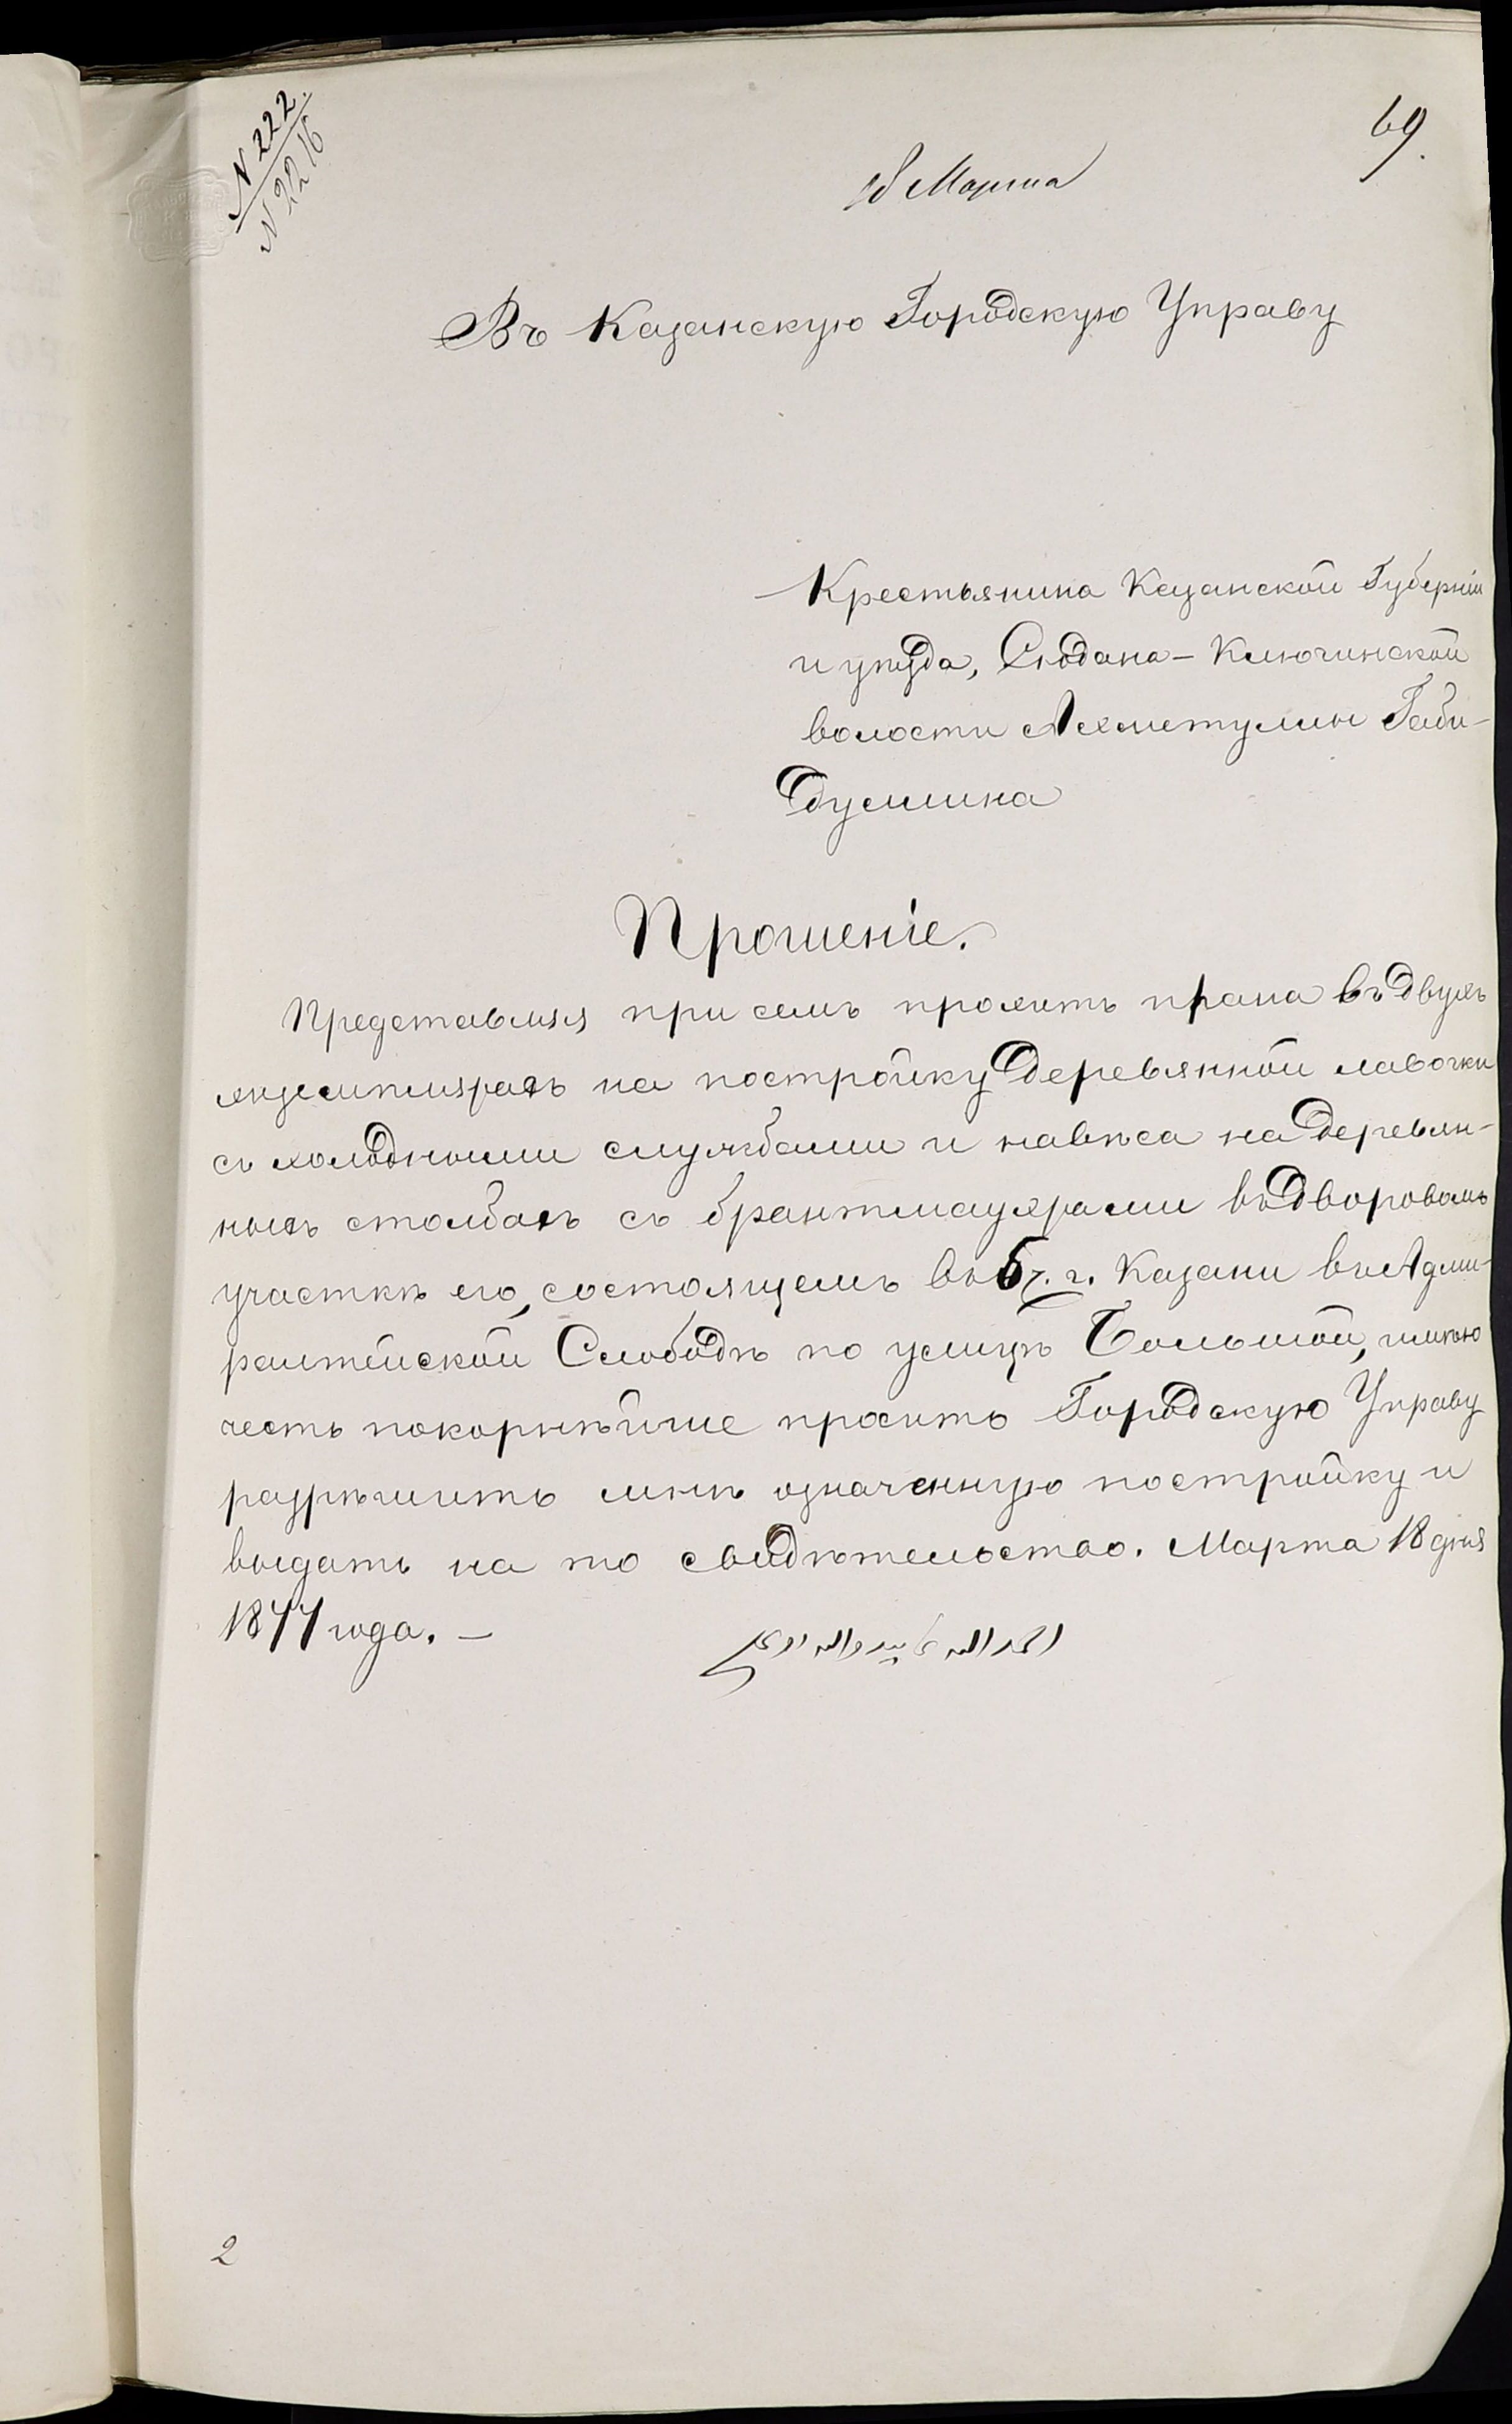 N 222.
N 2216
69.
18 Марта
Въ Казанскую Городскую Управу
Крестьянина Казанской Губерніи
и уѣзда, Студено-Ключинской
волости Ахметуллы Габи-
дуллина
Прошеніе.
Представляя при семъ проэктъ плана въ двухъ
экземплярахъ на постройку деревянной лавочки
съ холодными службами и навѣса на деревян-
ныхъ столбахъ съ брантмауэрами въ дворовомъ
участкѣ его, состоящемъ въ 5 ч. г. Казани въ Адми-
ралтейской Слободѣ по улицѣ Большой, имѣю
честь покорнѣйше просить Городскую Управу
разрѣшить мнѣ означенную постройку и
выдать на то свидѣтельство. Марта 18 дня
1877 года. —
2